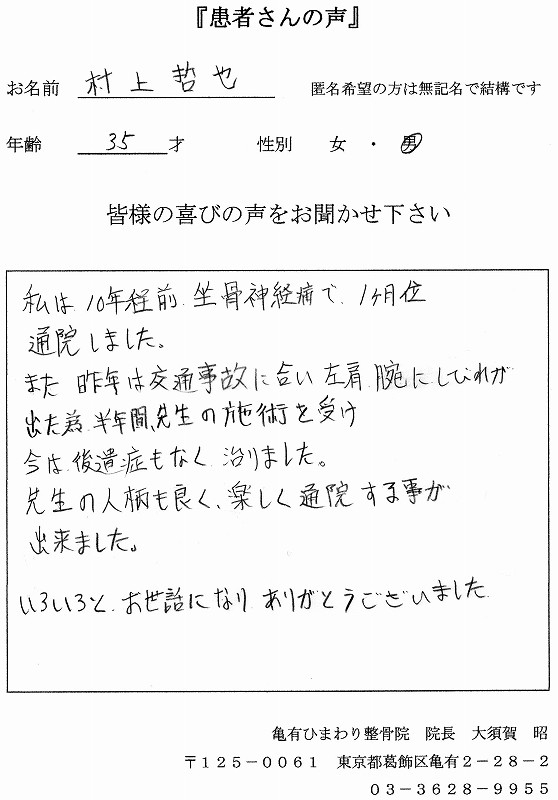 『患者さんの声』
お名前 村上哲也 匿名希望の方は無記名で結構です
年齢 35 才 性別 女 ・ 男
皆様の喜びの声をお聞かせ下さい
私は、10年程前、坐骨神経痛で、1ヶ月位
通院しました。
また 昨年は交通事故に合い 左肩、腕にしびれが
出た為 半年間、先生の施術を受け
今は、後遺症もなく、治りました。
先生の人柄も良く、楽しく通院する事が
出来ました。
いろいろと、お世話になり ありがとうございました
亀有ひまわり整骨院 院長 大須賀 昭
〒125－0061 東京都葛飾区亀有2－28－2
03－3628－9955